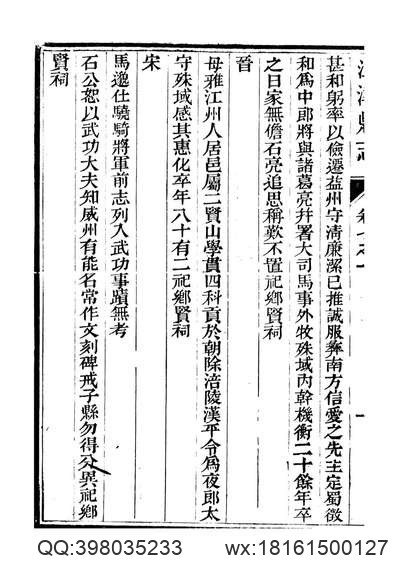 江津縣志
甚和躬率以儉遷益州守清廉潔已推誠服彝南方信愛之先主定蜀徵
和爲中郎將與諸葛亮幷署大司馬事外牧殊域內幹機衡二十餘年卒
之日家無儋石亮追思稱歎不置祀鄉賢祠
晉
毋雅江州人居邑屬二賢山學貫四科貢於朝除涪陵漢平令爲夜郎太
守殊域感其惠化卒年八十有二祀鄉賢祠
宋
馬逸仕驍騎將軍前志列入武功事蹟無考
石公恕以武功大夫知威州有能名常作文刻碑戒子縣勿得分異祀鄉
賢祠
QQ:398035233
wx:18161500127